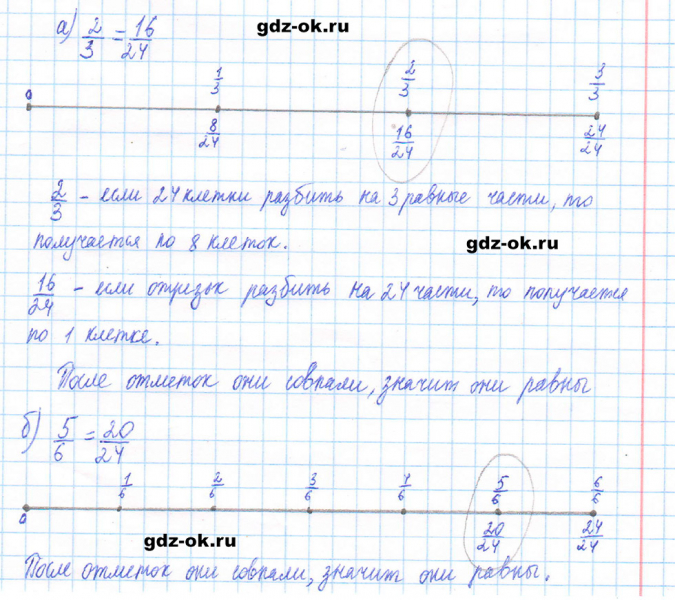 а) 2/3 = 16/24
gdz-ok.ru
0 1/3 2/3 3/3
8/24 16/24 24/24
2/3 – если 24 клетки разбить на 3 равные части, то
получается по 8 клеток.
gdz-ok.ru
16/24 – если отрезок разбить на 24 части, то получается
по 1 клетке.
После отметок они совпали, значит они равны
б) 5/6 = 20/24
1/6 2/6 3/6 4/6 5/6 6/6
0
20/24 24/24
gdz-ok.ru
После отметок они совпали, значит они равны.